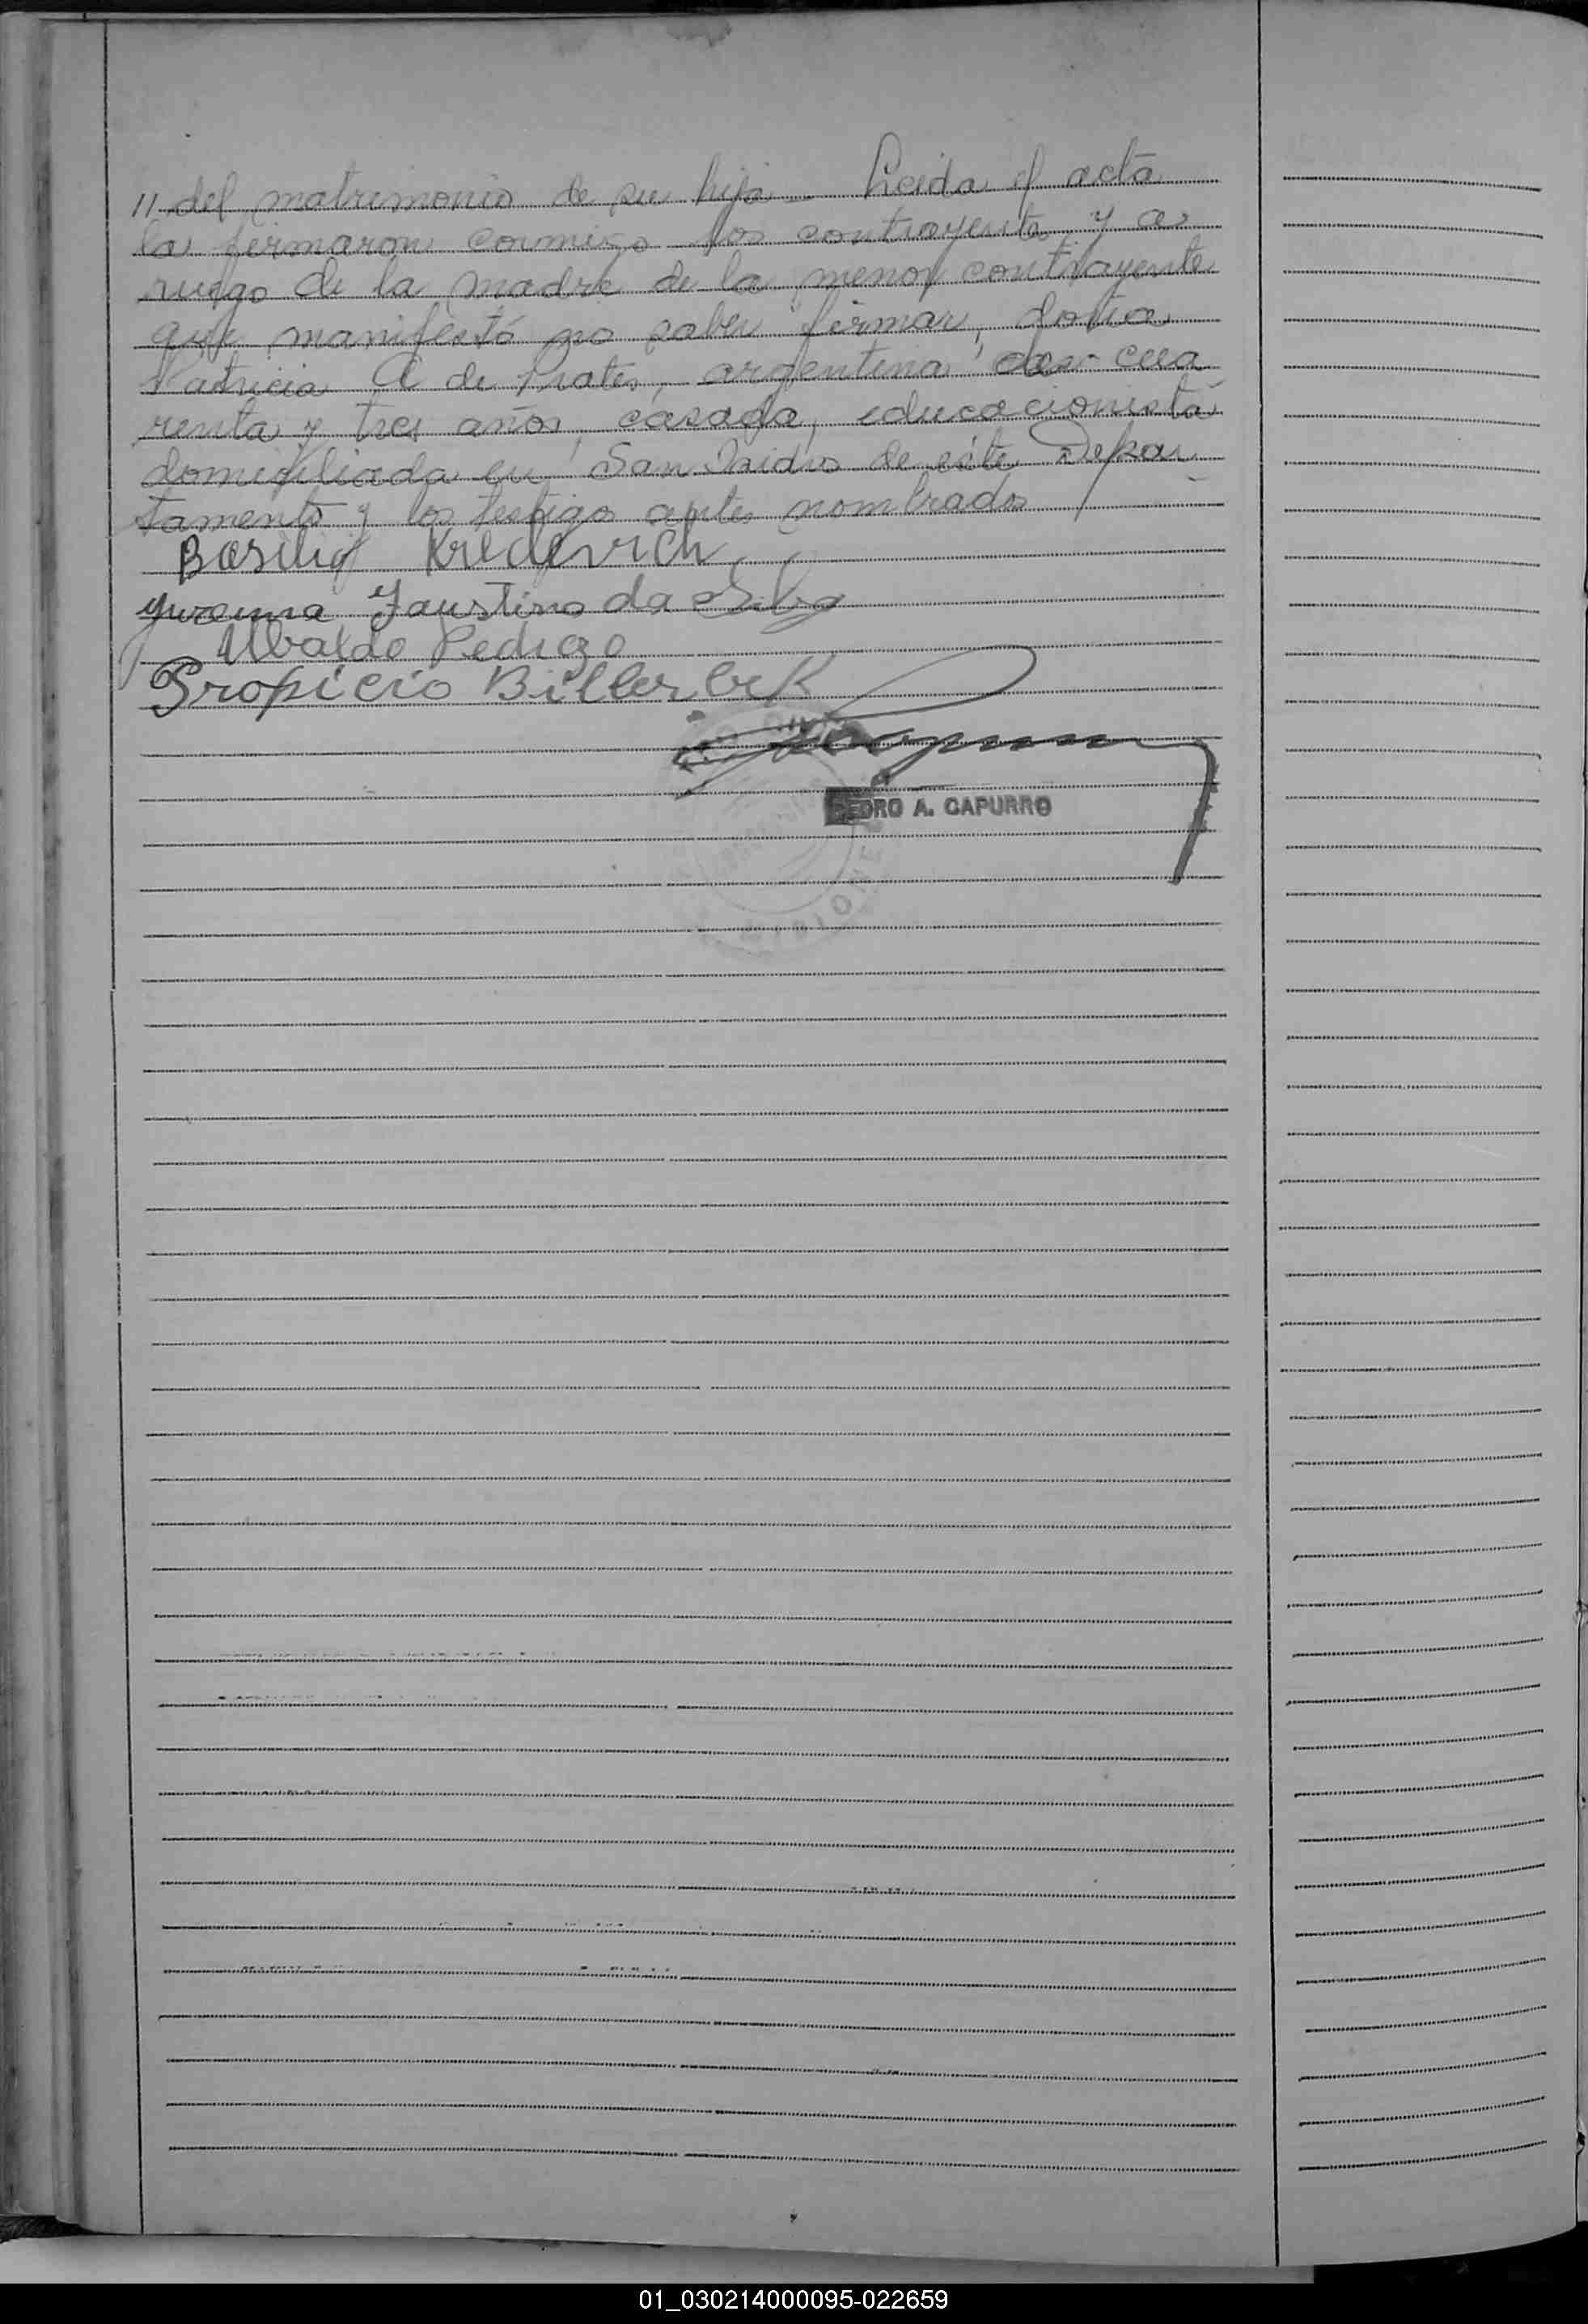 // del matrimonio de su hija - Leida el acta
la firmaron conmigo los contrayentes y a
ruego de la madre de la menor contrayente
que manifestó no saber firmar, doña
Patricia A de Prates, argentina, de cua
renta y tres años, casada, educacionista
domiciliada en San Isidro de éste Depar
tamento y los testigos antes nombrados
Basilio Kredevich
Faustino da Silva
Ubaldo Pedrozo
Propicio Billerbek
PEDRO A. CAPURRO
01_030214000095-022659